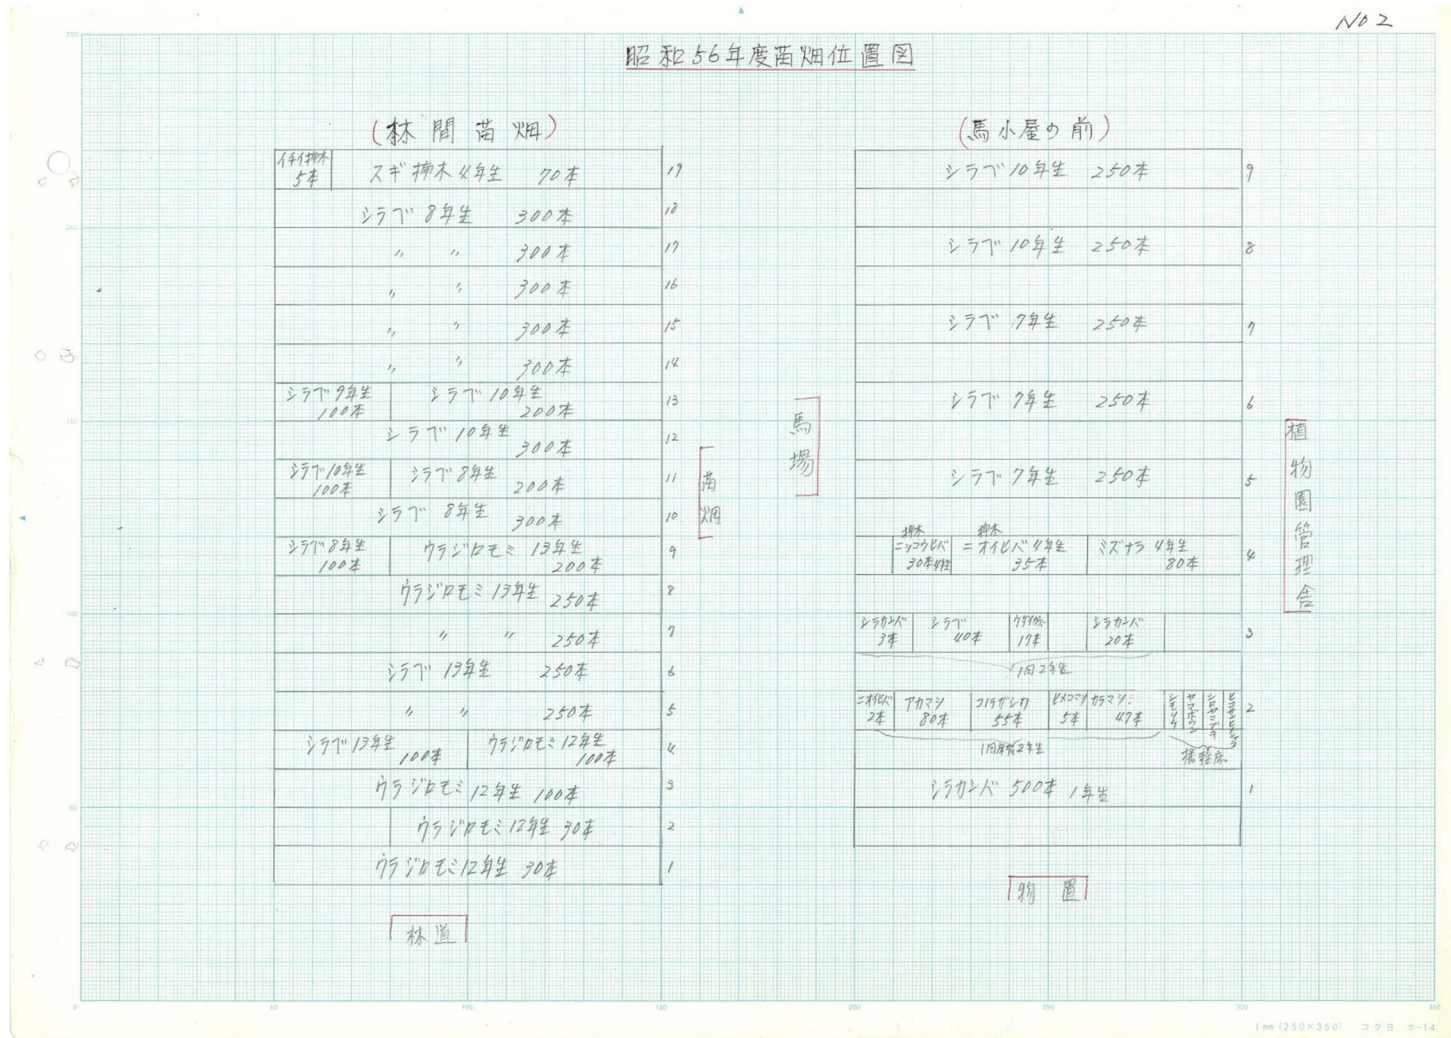 NO 2
昭和56年度苗畑位置図
(林間苗畑)
イチイ挿木
5本
スギ挿木4年生 70本
19
シラブ 8年生 300本
18
〃 〃 300本
17
〃 〃 300本
16
〃 〃 300本
15
〃 〃 300本
14
シラブ9年生
100本
シラブ 10年生
200本
13
シラブ 10年生
300本
12
シラブ10年生
100本
シラブ 8年生
200本
11
シラブ 8年生
300本
10
シラブ8年生
100本
ウラジロモミ 13年生
200本
9
ウラジロモミ 13年生 250本
8
〃 〃 250本
7
シラブ 13年生 250本
6
〃 〃 250本
5
シラブ13年生
100本
ウラジロモミ12年生
100本
4
ウラジロモミ 12年生 100本
3
ウラジロモミ12年生 30本
2
ウラジロモミ12年生 30本
1
林道
苗畑
馬場
(馬小屋の前)
シラブ 10年生 250本
9
シラブ 10年生 250本
8
シラブ 7年生 250本
7
シラブ 7年生 250本
6
シラブ 7年生 250本
5
挿木
ニッコウヒバ
30本4年
挿木
ニオイヒバ4年生
35本
ミズナラ 4年生
80本
4
シラカンバ
3本
シラブ
40本
17本
シラカンバ
20本
3
1回2年生
ニオイヒバ
2本
アカマツ
80本
コノテガシワ
55本
ヒメコマツ
5本
カラマツ
47本
シモツケ
2
1回床替2年生
播種床
シラカンバ 500本 1年生
1
物置
植物園管理舎
250
200
150
100
50
0
50
100
150
200
250
300
350
1mm(250×350) コクヨ ホ-14